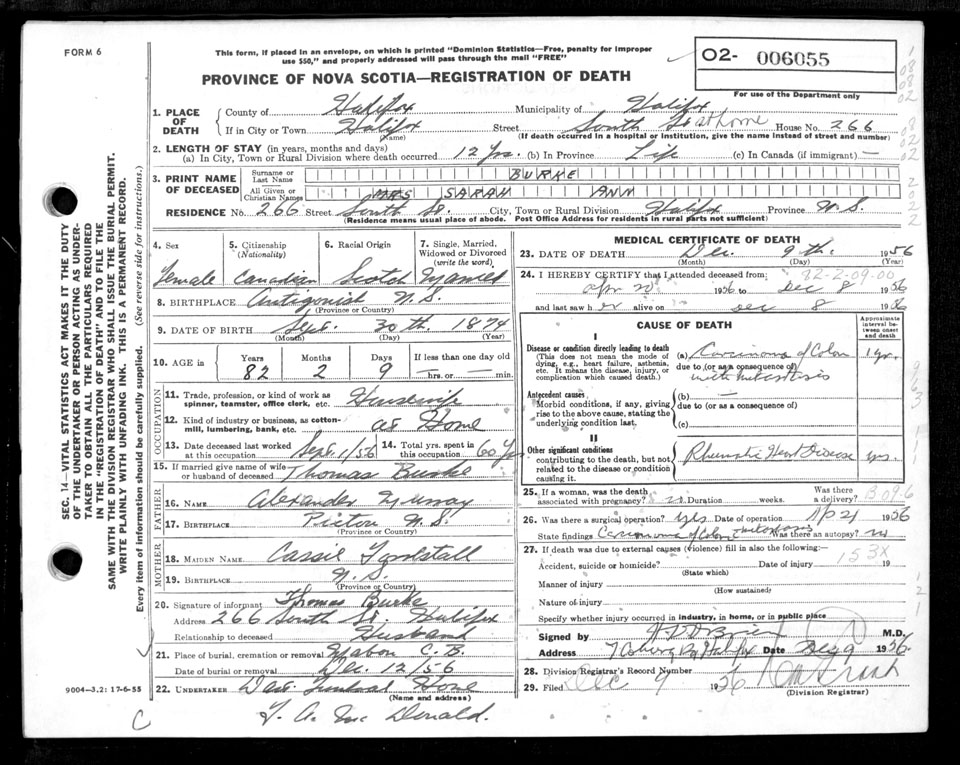 FORM 6
This form, if placed in an envelope, on which is printed "Dominion Statistics—Free, penalty for improper
use $50," and properly addressed will pass through the mail "FREE"
PROVINCE OF NOVA SCOTIA—REGISTRATION OF DEATH
02- 006055
For use of the Department only
1. PLACE OF DEATH
County of Halifax Municipality of Halifax
If in City or Town Halifax Street South St at home House No. 266
(Name) (If death occurred in a hospital or institution, give the name instead of street and number)
2. LENGTH OF STAY (in years, months and days)
(a) In City, Town or Rural Division where death occurred 12 Yrs. (b) In Province Life (c) In Canada (if immigrant) —
3. PRINT NAME OF DECEASED
Surname or Last Name BURKE
All Given or Christian Names MRS SARAH ANN
RESIDENCE No. 266 Street South St. City, Town or Rural Division Halifax Province N.S.
(Residence means usual place of abode. Post Office Address for residents in rural parts not sufficient)
4. Sex 5. Citizenship (Nationality) 6. Racial Origin 7. Single, Married, Widowed or Divorced (write the word)
Female Canadian Scotch Married
8. BIRTHPLACE Antigonish N.S.
(Province or Country)
9. DATE OF BIRTH Sept. 30th 1874
(Month) (Day) (Year)
10. AGE in Years Months Days If less than one day old
82 2 9 — hrs. or — min.
OCCUPATION
11. Trade, profession, or kind of work as
spinner, teamster, office clerk, etc. Housewife
12. Kind of industry or business, as cotton-
mill, lumbering, bank, etc. at Home
13. Date deceased last worked at this occupation Sept. 1/56 14. Total yrs. spent in this occupation 60 Y
15. If married give name of wife or husband of deceased Thomas Burke
FATHER
16. NAME Alexander Murray
17. BIRTHPLACE Pictou N.S.
(Province or Country)
MOTHER
18. MAIDEN NAME Cassie
19. BIRTHPLACE N.S.
(Province or Country)
20. Signature of informant Thomas Burke
Address 266 South St. Halifax
Relationship to deceased Husband
21. Place of burial, cremation or removal Mabou C.B.
Date of burial or removal Dec. 12/56
22. UNDERTAKER Funeral Home
(Name and address)
9004-3.2: 17-6-55
C
Mc Donald.
MEDICAL CERTIFICATE OF DEATH
23. DATE OF DEATH Dec. 9th. 1956
(Month) (Day) (Year)
24. I HEREBY CERTIFY that I attended deceased from: 82-2-09-00
Apr 20 1956 to Dec 8 1956
and last saw her alive on Dec 8 1956
CAUSE OF DEATH
Approximate interval between onset and death
I
Disease or condition directly leading to death
(This does not mean the mode of dying, e.g., heart failure, asthenia, etc. It means the disease, injury, or complication which caused death.)
(a) Carcinoma of Colon 1 yr.
due to (or as a consequence of)
with metastasis
Antecedent causes
Morbid conditions, if any, giving rise to the above cause, stating the underlying condition last.
(b) —
due to (or as a consequence of)
(c)
II
Other significant conditions
contributing to the death, but not related to the disease or condition causing it.
Rheumatic Heart Disease yrs.
25. If a woman, was the death associated with pregnancy? no Duration weeks. Was there a delivery?
26. Was there a surgical operation? yes Date of operation Ap 21 1956
State findings Carcinoma of Colon metastasis Was there an autopsy? no
27. If death was due to external causes (violence) fill in also the following:—
153X
Accident, suicide or homicide? Date of injury 19
(State which)
Manner of injury
(How sustained)
Nature of injury
Specify whether injury occurred in industry, in home, or in public place
Signed by M.D.
Address Halifax Date Dec 9 1956
28. Division Registrar's Record Number
29. Filed Dec 9 1956
(Division Registrar)
SEC. 14—VITAL STATISTICS ACT MAKES IT THE DUTY
OF THE UNDERTAKER OR PERSON ACTING AS UNDER-
TAKER TO OBTAIN ALL THE PARTICULARS REQUIRED
IN THE "REGISTRATION OF DEATH" AND TO FILE THE
SAME WITH THE DIVISION REGISTRAR WHO SHALL ISSUE THE BURIAL PERMIT.
WRITE PLAINLY WITH UNFADING INK. THIS IS A PERMANENT RECORD.
Every item of information should be carefully supplied. (See reverse side for instructions.)